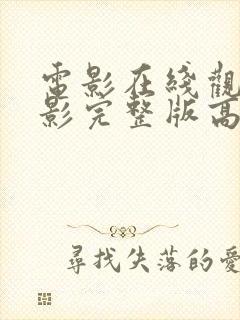 電影在綫觀
影完整版高
尋找失落的愛